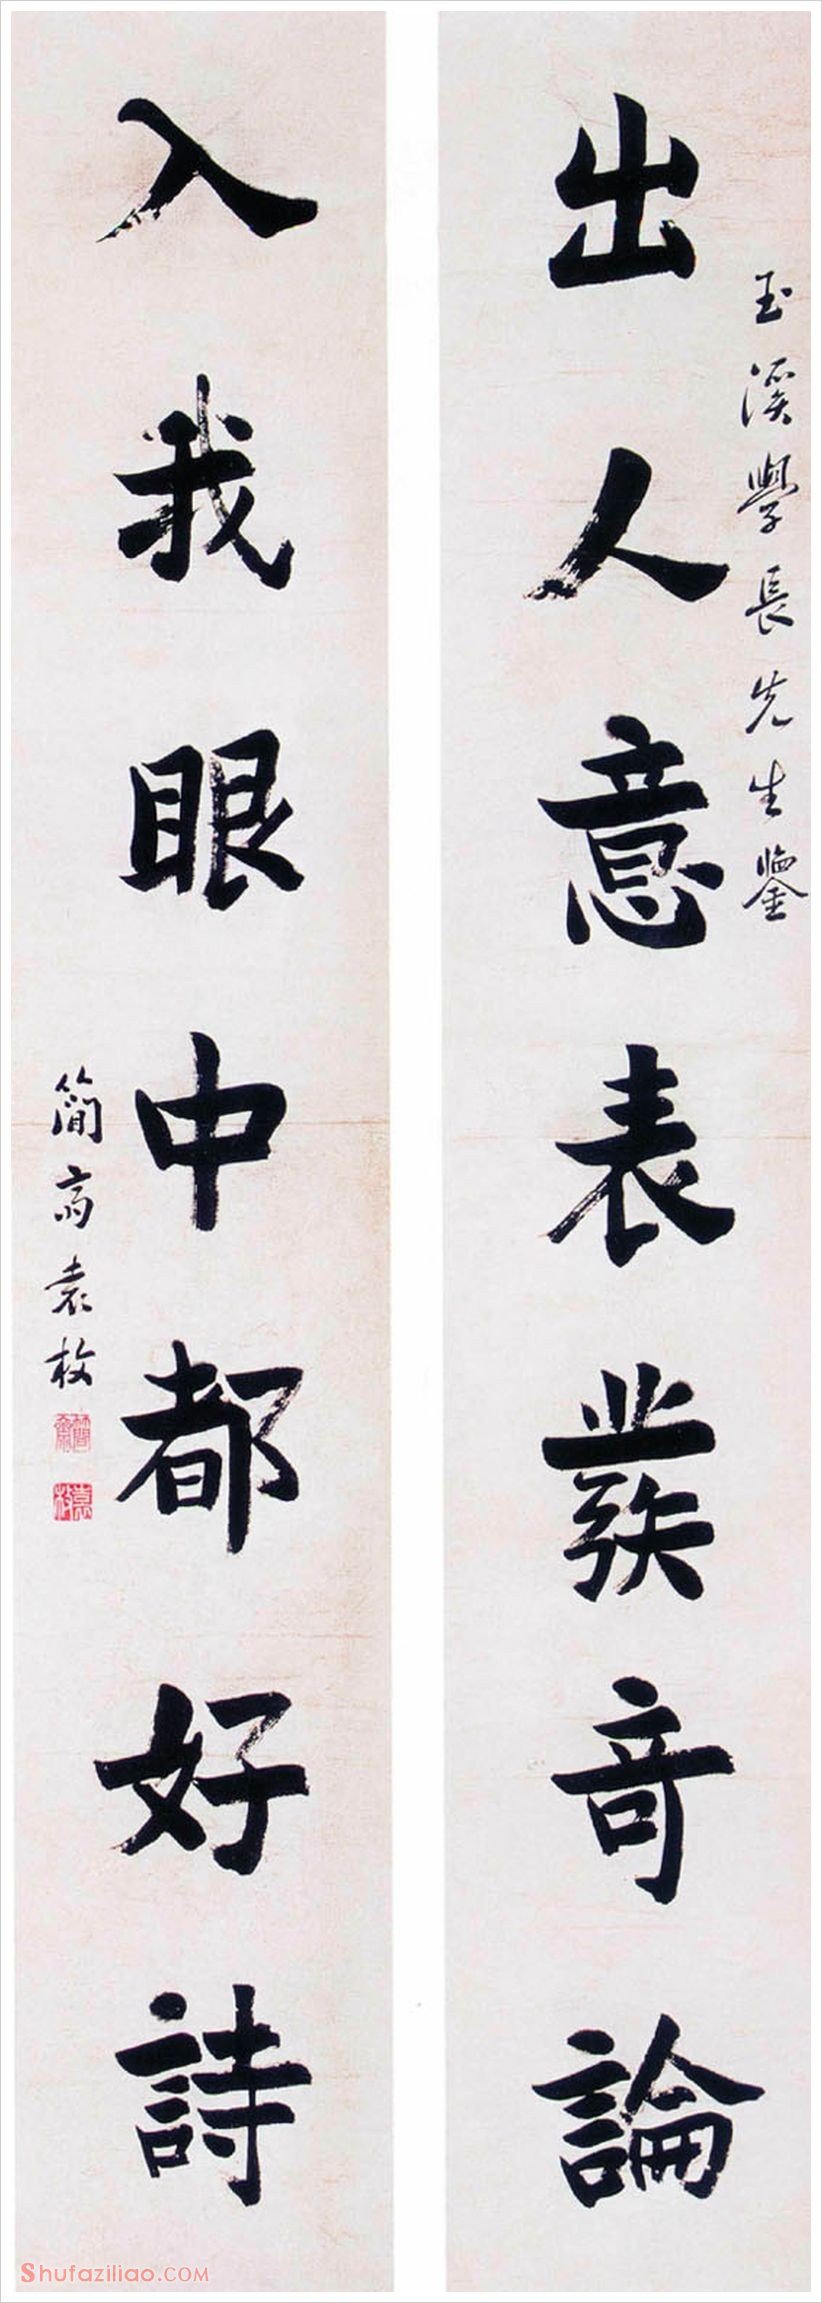 玉溪學長先生鑒
出人意表發奇論
入我眼中都好詩
簡齋袁枚
簡齋
袁枚
Shufaziliao.COM